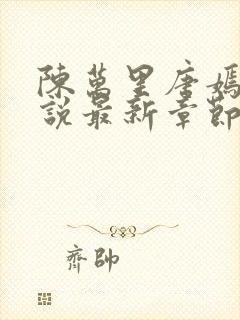 陳萬里唐嫣
說最新章節
齊帥